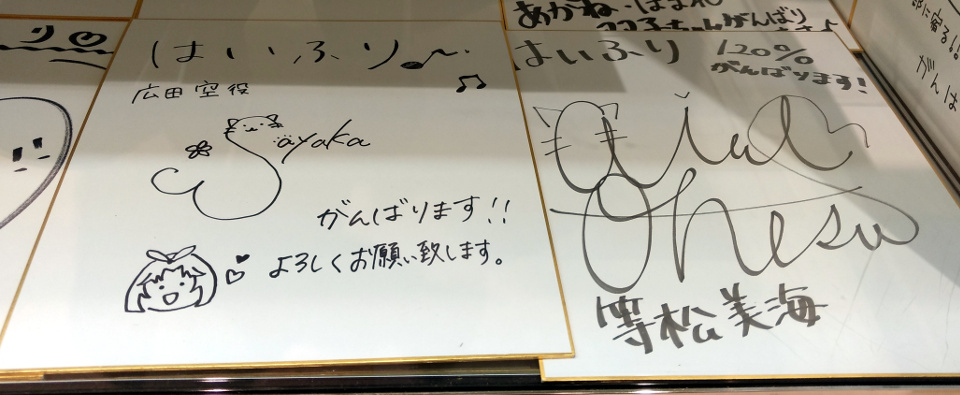 り
はいふり
広田空役
Sayaka
がんばります!!
よろしくお願い致します。
あかね・はまれ
ココ子ちゃんがんばり
はいふり 120%
がんばります!
Ohesu
等松美海
がんば